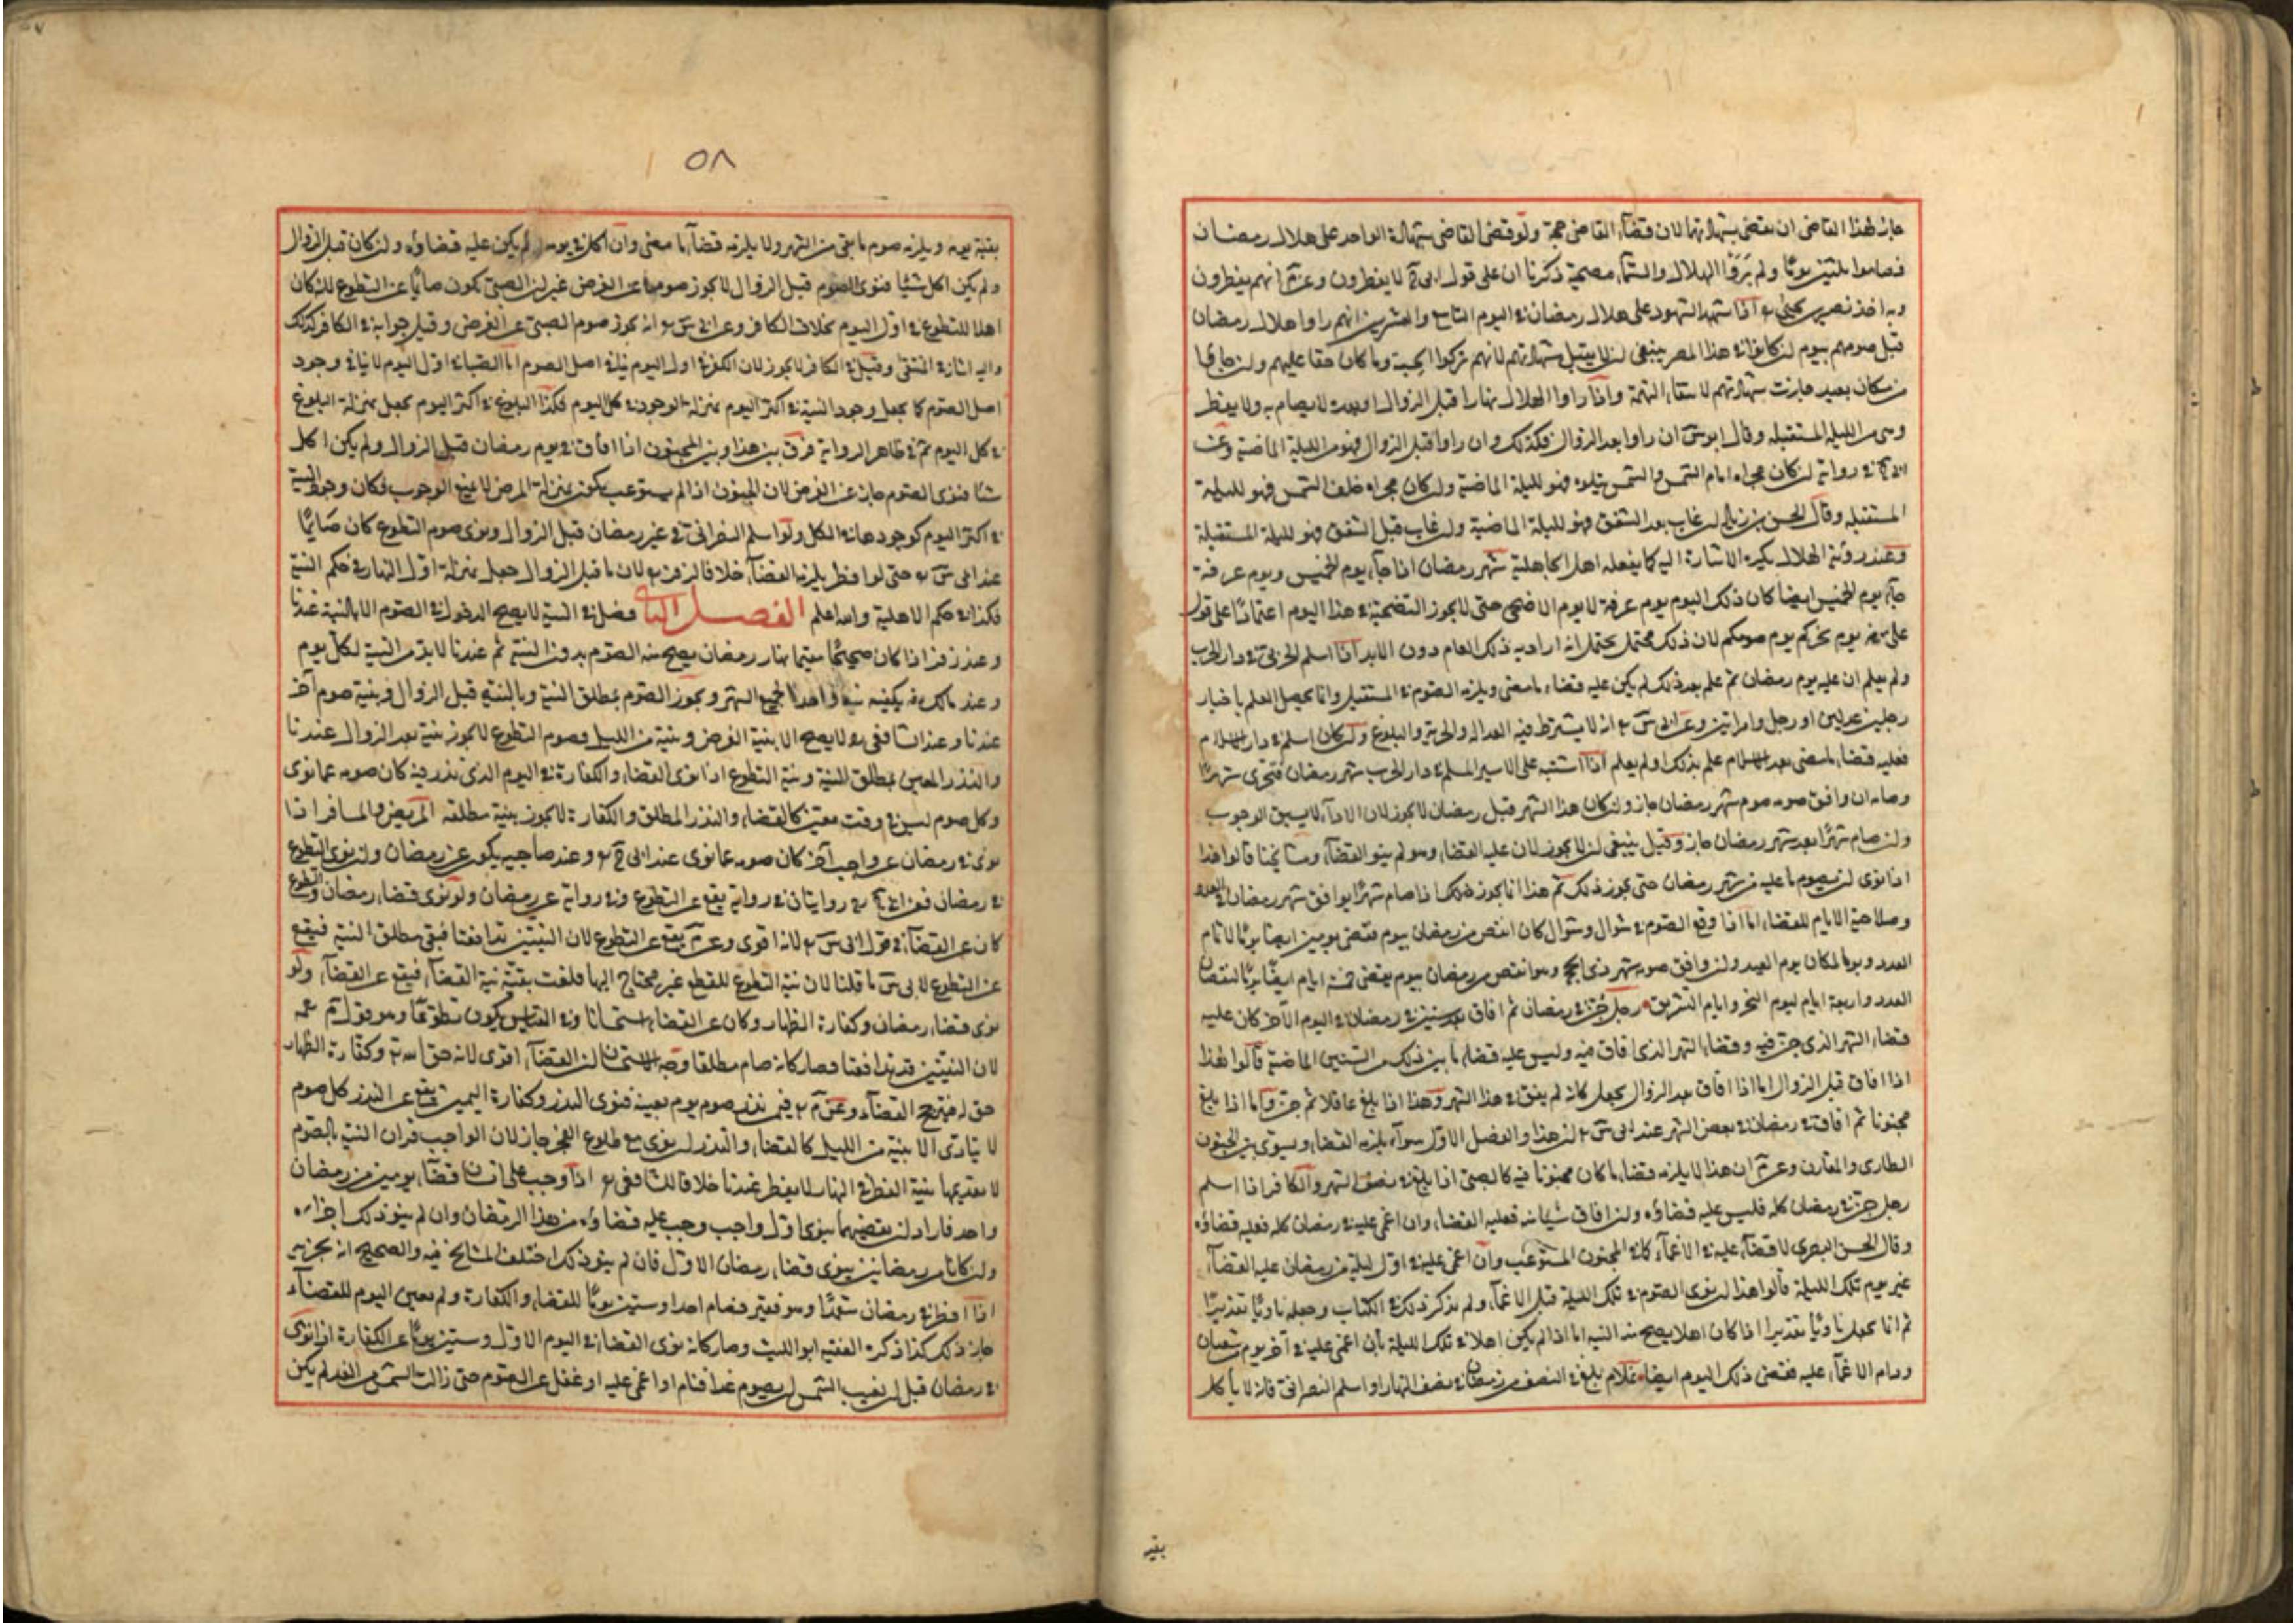 جاز لهذا القاضى ان يقضى بشهادتهما لان قضاء القاضى حجة ولو قضى القاضى بشهادة الواحد على هلال رمضان
فصاموا ثلثين يوما ولم يروا الهلال والسماء مصحية ذكرنا ان على قول ابى ح لا يفطرون وعن م انهم يفطرون
وبه اخذ نصير بن يحيى اذا شهد الشهود على هلال رمضان فى اليوم التاسع والعشرين انهم راوا هلال رمضان
قبل صومهم بيوم ان كانوا فى هذا المصر ينبغى ان لا يقبل شهادتهم لانهم تركوا الحسبة وما كان حقا عليهم وان جاؤا
من مكان بعيد جازت شهادتهم لانتفاء التهمة واذا راوا الهلال نهارا قبل الزوال او بعده لا يصام به ولا يفطر
وهى من الليلة المستقبلة وقال ابو س ان راوا بعد الزوال فكذلك وان راوا قبل الزوال فهو من الليلة الماضية وعن
ابى ح فى رواية ان كان مجراه امام الشمس والشمس يتلوه فهو لليلة الماضية وان كان مجراه خلف الشمس فهو لليلة
المستقبلة وقال الحسن بن زياد ان غاب بعد الشفق فهو لليلة الماضية وان غاب قبل الشفق فهو لليلة المستقبلة
وعند رؤية الهلال يكره الاشارة اليه كما يفعله اهل الجاهلية شهر رمضان اذا جاء يوم الخميس ويوم عرفة
جاء يوم الخميس ايضا كان ذلك اليوم يوم عرفة لا يوم الاضحى حتى لا يجوز التضحية فى هذا اليوم اعتمادا على قول
على رضه يوم نحركم يوم صومكم لان ذلك محتمل يحتمل انه اراد به ذلك العام دون الابد اذا اسلم الحربى فى دار الحرب
ولم يعلم ان عليه يوم رمضان ثم علم بعد ذلك لم يكن عليه قضاء ما مضى ويلزمه الصوم فى المستقبل وانما يحصل العلم باخبار
رجلين عدلين او رجل وامراتين وعن ابى س انه لا يشترط فيه العدالة والحرية والبلوغ وان كان اسلم فى دار الاسلام
فعليه قضاء ما مضى بعد الاسلام علم بذلك او لم يعلم اذا اشتبه على الاسير المسلم فى دار الحرب شهر رمضان فتحرى شهرا
وصامه ان وافق صومه صوم شهر رمضان جاز وان كان هذا الشهر قبل رمضان لا يجوز لان الاداء لا يسبق الوجوب
وان صام شهرا بعد شهر رمضان جاز وقيل ينبغى ان لا يجوز لان عليه القضاء وهو لم ينو القضاء ومشايخنا قالوا هذا
اذا نوى ان يصوم ما عليه من شهر رمضان حتى يجوز ذلك ثم هذا انما يجوز ذلك اذا صام شهرا يوافق شهر رمضان فى العدد
وصلاحية الايام للقضاء اما اذا وقع الصوم فى شوال وشوال كان انقص من رمضان بيوم فيقضى يومين ايضا يوما لاتمام
العدد ويوما لمكان يوم العيد وان وافق صومه شهر ذى الحجة وهو انقص من رمضان بيوم يقضى خمسة ايام ايضا يوما لنقصان
العدد واربعة ايام ليوم النحر وايام التشريق رجل جن فى رمضان ثم افاق بعد سنين فى رمضان فى اليوم الآخر كان عليه
قضاء الشهر الذى جن فيه وقضاء الشهر الذى افاق فيه وليس عليه قضاء ما بين ذلك من السنين الماضية قالوا هذا
اذا افاق قبل الزوال اما اذا افاق بعد الزوال يجعل كانه لم يفق فى هذا الشهر وهذا اذا بلغ عاقلا ثم جن واما اذا بلغ
مجنونا ثم افاق فى رمضان فى بعض الشهر عند ابى س ان هذا والفصل الاول سواء يلزمه القضاء ويسوى بين الجنون
الطارى والمقارن وعن م ان هذا لا يلزمه قضاء ما كان مجنونا فيه كالصبى اذا بلغ فى نصف الشهر والكافر اذا اسلم
رجل جن فى رمضان كله فليس عليه قضاؤه وان افاق شيئا منه فعليه القضاء وان اغمى عليه فى رمضان كله فعليه قضاؤه
وقال الحسن البصرى لا قضاء عليه فى الاغماء كما فى الجنون المستوعب وان اغمى عليه فى اول ليلة من رمضان عليه القضاء
غير يوم تلك الليلة قالوا هذا ان نوى الصوم فى تلك الليلة قبل الاغماء ولم يذكر ذلك فى الكتاب وجعله ناويا تقديرا
ثم انما يجعل ناويا تقديرا اذا كان اهلا يصح منه النية اما اذا لم يكن اهلا فى تلك الليلة بان اغمى عليه فى آخر يوم شعبان
ودام الاغماء عليه فيقضى ذلك اليوم ايضا غلام بلغ فى النصف من رمضان فى نصف النهار او اسلم النصرانى فانه لا ياكل
بقية
٥٨
بقية يومه ويلزمه صوم ما بقى من الشهر ولا يلزمه قضاء ما مضى وان اكل فى يومه لم يكن عليه قضاؤه وان كان قبل الزوال
ولم يكن اكل شيئا فنوى الصوم قبل الزوال لا يجوز صومهما عن الفرض غير ان الصبى يكون صائما عن التطوع لانه كان
اهلا للتطوع فى اول اليوم بخلاف الكافر وعن ابى س انه يجوز صوم الصبى عن الفرض وقيل جوابه فى الكافر كذلك
واليه اشار فى المنتقى وقيل فى الكافر لا يجوز لان الكفر فى اول اليوم ينافى اصل الصوم اما الصبا فى اول اليوم لا ينافى وجود
اصل الصوم كما يجعل وجود النية فى اكثر اليوم بمنزلة الوجود فى كل اليوم فكذا البلوغ فى اكثر اليوم يجعل بمنزلة البلوغ
فى كل اليوم ثم فى ظاهر الرواية فرق بين هذا وبين المجنون اذا افاق فى يوم رمضان قبل الزوال ولم يكن اكل
شيئا فنوى الصوم جاز عن الفرض لان الجنون اذا لم يستوعب يكون بمنزلة المرض لا يمنع الوجوب فكان وجود النية
فى اكثر اليوم كوجودها فى الكل ولو اسلم النصرانى فى غير رمضان قبل الزوال ونوى صوم التطوع كان صائما
عند ابى س حتى لو افطر يلزمه القضاء خلافا لزفر لان ما قبل الزوال جعل بمنزلة اول النهار فى حكم النية
فكذا فى حكم الاهلية والله اعلم الفصل الثانى فصل فى النية لا يصح الدخول فى الصوم الا بالنية عندنا
وعند زفر اذا كان صحيحا مقيما بنهار رمضان يصح منه الصوم بدون النية ثم عندنا لا بد من النية لكل يوم
وعند مالك يكفيه نية واحدة لجميع الشهر ويجوز الصوم بمطلق النية وبالنية قبل الزوال وبنية صوم آخر
عندنا وعند الشافعى لا يصح الا بنية الفرض وبنية من الليل وصوم التطوع لا يجوز بنية بعد الزوال عندنا
والنذر المعين بمطلق النية ونية التطوع اذا نوى القضاء والكفارة فى اليوم الذى نذر فيه كان صومه عما نوى
وكل صوم ليس فى وقت معين كالقضاء والنذر المطلق والكفارة لا يجوز بنية مطلقة المريض والمسافر اذا
نوى فى رمضان عن واجب آخر كان صومه عما نوى عند ابى ح وعند صاحبيه يكون عن رمضان وان نوى التطوع
فى رمضان فعن ابى ح روايتان فى رواية يقع عن التطوع وفى رواية عن رمضان ولو نوى قضاء رمضان والتطوع
كان عن القضاء فى قول ابى س لانه اقوى وعن م يقع عن التطوع لان النيتين تدافعتا فبقى مطلق النية فيقع
عن التطوع لابى س ما قلنا لان نية التطوع للتطوع غير محتاج اليها فلغت بقيت نية القضاء فيقع عن القضاء ولو
نوى قضاء رمضان وكفارة الظهار كان عن القضاء استحسانا وفى القياس يكون تطوعا وهو قول م
لان النيتين قد تدافعتا فصار كانه صام مطلقا وجه الاستحسان ان القضاء اقوى لانه حق الله تع وكفارة الظهار
حق له فيترجح القضاء وعن م فيمن نذر صوم يوم بعينه فنوى النذر وكفارة اليمين يقع عن النذر كل صوم
لا يتادى الا بنية من الليل كالقضاء والنذر ان نوى مع طلوع الفجر جاز لان الواجب قران النية بالصوم
لا تقديمها نية الفطر فى النهار لا يفطر عندنا خلافا للشافعى اذا وجب على انسان قضاء يومين من رمضان
واحد فاراد ان يقضيهما ينوى اول واجب وجب عليه قضاؤه من هذا الرمضان وان لم ينو ذلك اجزاه
وان كانا من رمضانين ينوى قضاء رمضان الاول فان لم ينو ذلك اختلف المشايخ فيه والصحيح انه يجزيه
اذا افطر فى رمضان متعمدا وهو فقير فصام احدا وستين يوما للقضاء والكفارة ولم يعين اليوم للقضاء
جاز ذلك كذا ذكره الفقيه ابو الليث وصار كانه نوى القضاء فى اليوم الاول وستين يوما عن الكفارة اذا نوى
فى رمضان قبل ان يغيب الشمس ان يصوم غدا فنام او اغمى عليه او غفل عن الصوم حتى زالت الشمس من الغد لم يكن